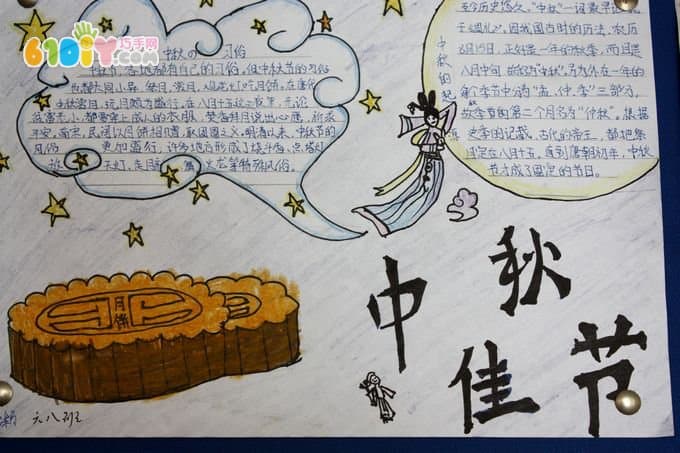 610DIY巧手网
中秋の 习俗
中秋节各地都有自己的习俗,但中秋节的习俗
也都大同小异,祭月,赏月,
中秋赏月,玩月颇为盛行,在八月十五这一夜,无论
贫富老小,都要穿上成人的衣服,焚香拜月说出心愿,祈求
平安,南宋,民间以月饼相赠,取团圆之义,明清以来,中秋节的
风俗 更加盛行,许多地方形成了烧斗香、点塔灯
火龙等特殊风俗。
中秋的起源
至今历史悠久,“中秋”一词最早
于《周礼》,因我国古时的历法,农历
8月15日,正好是一年的秋季,而且是
八月中旬,故称为“中秋”,另外在一年的
每个季节中分为“孟、仲、季”三部分,
故秋季的第二个月名为“仲秋”,根据
史学因记载,古代的帝王,都把祭
月定在八月十五,直到唐朝初年,中秋
节才成了固定的节日。
中秋
佳节
月饼
六八班